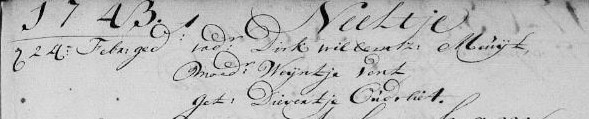 1743. Neeltje
24: Febr: ged: vadr: Dirk Willemtz: Muijt,
moedr Weijntje Vent
get: Dievertje Ouderliet.